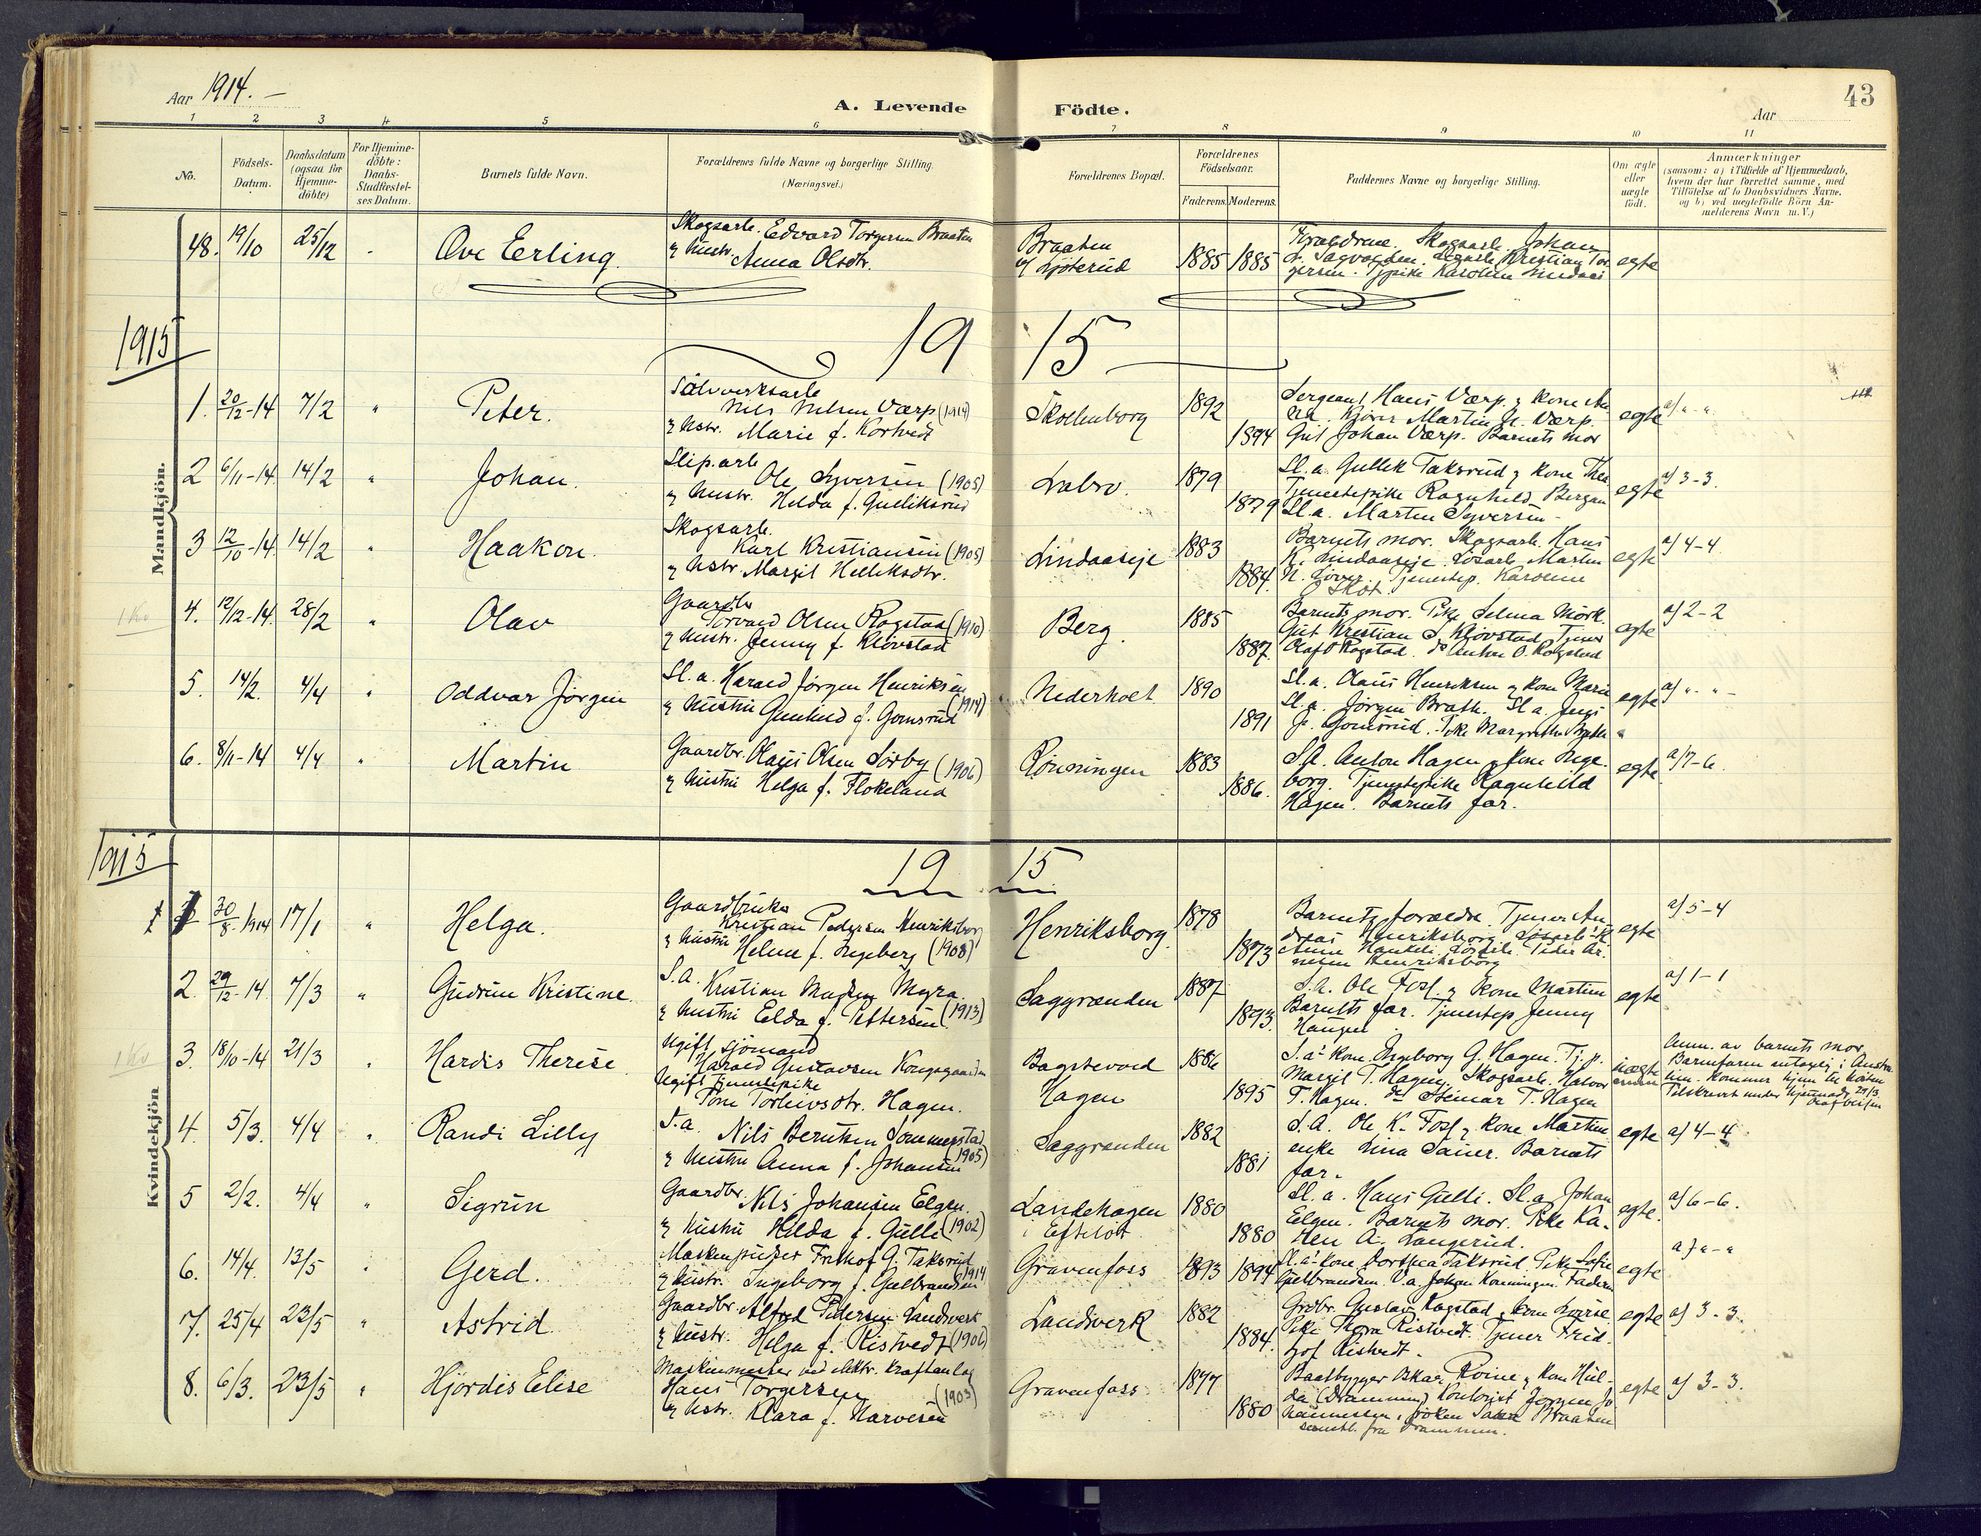 Aar 1914. —
A. Levende Födte.
Aar
43
1 2 3 4 5 6 7 8 9 10 11
No.
Födsels-Datum.
Daabsdatum (ogsaa for Hjemme-döbte)
For Hjemme-döbte: Daabs-Stadfæstel-ses Datum.
Barnets fulde Navn.
Forældrenes fulde Navne og borgerlige Stilling. (Næringsvei.)
Forældrenes Bopæl.
Forældrenes Födselsaar.
Faderens. Moderens.
Faddernes Navne og borgerlige Stilling.
Om ægte eller uægte födt.
Anmærkninger
(saasom: a) i Tilfælde af Hjemmedaab, hvem der har forrettet samme, med Tilföielse af to Daabsvidners Navne, og b) ved uægtefödte Börn Anmelderens Navn m. V.)
48. 19/10 25/12 Ove Erling.
Skogsarb. Edvard Torgersen Braaten
& hustr. Anna Olsdtr.
Braaten
1885 1885
Forældrene. Skogsarb. Johan
Kristian Tor-
gersen. Tjpike Karoline Lindaas
egte
1915
19 15
Mandkjön.
1. 20/12-14 7/2 " Peter.
Sølvverksarb
Nils Nilsen Værp (1914)
& hstr. Marie f. Kortvedt
Skollenborg
1892
1894
Sergeant Hans Værp & kone An
na. Martin N. Værp.
Gut Johan Værp. Barnets mor
egte
a) " - "
2 6/11-14 14/2 " Johan.
Slip.arb
Ole Syversen (1905)
& hustr. Helda f. Gulliksrud
Labro.
1879
1879
Sl.a. Gullik Taksrud & kone Thea
Tjenestepike Ragnhild Bergan
Sl.a. Martin Syversen-
egte
a) 3-3.
3 12/10-14 14/2 " Haakon.
Skogsarb.
Karl Kristiansen (1905)
& hstr. Margit Helliksdtr.
Lindaaseje
1883
1884.
Barnets mor. Skogsarb. Hans
K. Lindaaseje. Løsarb. Martin
N. Tjenestep. Karoline
O Skot.
egte
a) 4-4
1 Kv
4. 12/12-14. 28/2 " Olav
Gaardbr
Torvald Olsen Rogstad (1910)
& hustr. Jenny f. Kløvstad
Berg.
1885
1887.
Barnets mor. Pike Selma Mørk.
Gut Kristian S. Kløvstad, Tjener
Olaf O Rogstad. do Anton O. Rogstad
egte
a) 2-2
5. 14/2. 4/4 " Oddvar Jørgen
Sl.a. Harald Jørgen Henriksen
& hustru Gunhild f. Gomsrud (1914)
Nederhoel
1890
1891
Sl.a. Olaus Henriksen & kone Marie
Sl.a. Jørgen Brath. Sl a Jens
J. Gomsrud. Pike Margrethe
egte
a) " - " -
6. 8/11-14 4/4 " Martin
Gaardbr. Olaus Olsen Sørby (1906)
& hustru Helga f. Flokeland
Rønningen
1883
1886.
S.A. Anton Hagen & kone Inge-
borg. Tjenestepike Ragnhild
Hagen. Barnets far.
egte
a) 7-6.
1915
19 15
Kvindekjön
1 30/8.1914 17/1 " Helga.
Gaardbruker
Kristian Pedersen Henriksborg
& hustru Helene f. Ingeberg (1908)
Henriksborg.
1878
1873
Barnets forældre. Tjener An
dreas Henriksborg Løsarb. K.
Peder Ar-
nesen Henriksborg
egte
a) 5-4
2. 29/12-14. 7/3 " Gudrun Kristine.
S.A. Kristian Madsen Myra
& hustru Elda f. Pettersen (1913)
Saggrænden
1887
1893.
S.A. Ole Foss & kone Martine
Barnets far. Tjenestep Jenny
Haugen
egte
a) 1-1
1 Kv
3. 18/10-14 21/3 " Hardis Therese.
Ugift sjømand
Harald Gustavsen Kongsgaarden
Ugift Tjenestepike
Tone Torleivsdtr. Hagen.
Bogstevold
Hagen
1886
1895
S.a. kone Ingeborg G. Hagen. Tj.p.
Margit T. Hagen. Skogsarb. Halvor
T. Hagen. do Steinar T. Hagen
uægte
Anm. av barnets mor.
Barnefaren antagelig i Austra
lien. Kommer hjem til høsten
4. 5/3. 4/4 " Randi Lilly
S.a. Nils Berntsen Sommerstad
& hustru Anna f. Johansen (1905)
Saggrænden
1882
1881
S.A. Ole K. Foss & kone Martine
enke Lina Saner. Barnets
far.
egte
a) 4-4
5 2/2. 4/4 " Sigrun
Gaardbr. Nils Johansen Elgen.
& hustru Hilda f. Gulli (1902)
Landehagen
i Efteløt
1880
1880
Sl.a. Hans Gulli. Sl.a. Johan
Elgen. Barnets mor. Pike Ka-
ren A. Langerud.
egte.
a) 6-6.
6. 14/4. 13/5 " Gerd.
Maskinpusser Frithof G. Taksrud
& hustr. Ingeborg f. Gulbrandsen (1914
Gravenfoss
1893 1894
Sl.a. kone Dorthea Taksrud. Pike Sofie
Gulbrandsen V.a. Johan Konningen. Faderen
egte
a) " - "
7. 25/4 23/5 " Astrid.
Gaardbr. Alfred Pedersen Landverk
& hustr. Helga f. Ristvedt (1906)
Landverk
1882
1884.
Grdbr. Gustav Rogstad & kone Lovise
Pike Thora Ristvedt. Tjener Frid-
hjof Ristvedt.
egte
a) 3-3.
8. 6/3. 23/5 " Hjørdis Elise
Maskinmester ved elektr. kraftanlæg
Hans Torgersen (1903)
& hstr. Klara f. Halvorsen
Gravenfoss
1877
1880
Baatbygger Oskar Roine & kone Hul-
da (Drammen) Kontorist Jørgen Jo
hannessen, frøken Braaten
samtl. fra Drammen.
egte
a) 3-3.